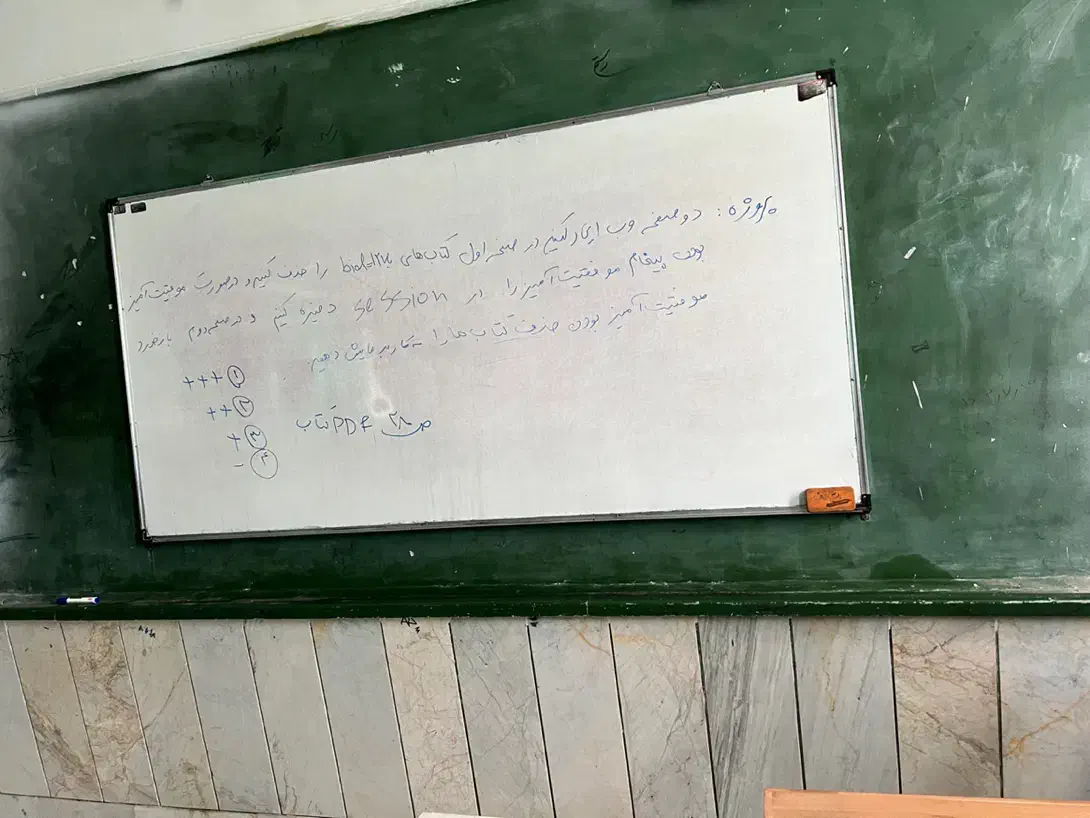 پروژه: دو صفحه وب ایجاد کنید در صفحه اول کتاب‌های را حذف کنید و در صورت موفقیت آمیز
بودن پیغام موفقیت آمیز را در session ذخیره کنیم و در صفحه دوم
موفقیت آمیز بودن حذف کتاب ها را به کاربر نمایش دهیم.
+++ ①
++ ②
+ ③
- ④
ص ۲۸ PDF کتاب